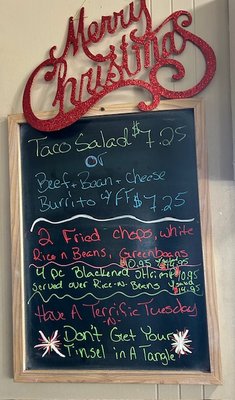 Merry
Christmas
Taco Salad $7.25
or
Beef + Bean + cheese
Burrito w/ FF $7.25
2 Fried chops, white
Rice n Beans, Greenbeans
4 pc Blackened Shrimp
Served over Rice-N-Beans
Have A Terrific Tuesday
-N-
Don't Get Your
Tinsel in A Tangle